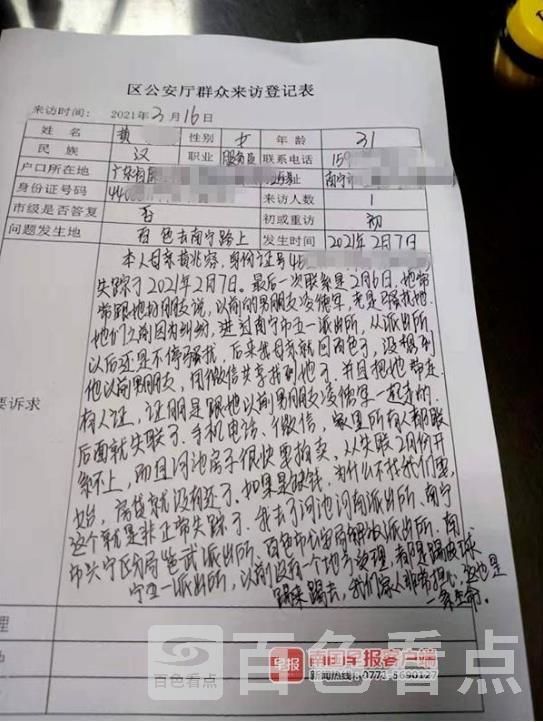 区公安厅群众来访登记表
来访时间: 2021年3月16日
姓名 黄 性别 女 年龄 31
民族 汉 职业 服务员 联系电话 159
户口所在地 广东省 住址 南宁市
身份证号码 44 来访人数 1
市级是否答复 否 初或重访 初
问题发生地 百色去南宁路上 发生时间 2021年2月7日
要诉求
本人母亲黄兆容,身份证号45
失踪于2021年2月7日。最后一次联系是2月6日,她常
常跟她的朋友说,以前的男朋友凌德军,老是骚扰她,
她们之前因有纠纷,进过南宁市五一派出所,从派出所,
以后还是不停骚扰,后来我母亲就回百色了,没想到
他以前男朋友,用微信共享找到她了,并且把她带走
有人证,证明是跟她以前男朋友凌德军一起走的,
后面就失联了,手机电话、微信,家里所有人都联
系不上,而且河池房子很快要拍卖,从失联2月份开
始,房贷就没有还了,如果是缺钱,为什么不找我们要,
这个就是非正常失踪了,我去了河池 派出所、南宁
市兴宁区分局 派出所、百色市公安局解放派出所、南
宁五一派出所,以前没有一个地方受理,都是踢皮球
踢来踢去,我们家人非常担心,这也是
一条生命。
理
百色看点
百色看点
早报 南国早报客户端
新闻热线:0771-5690127